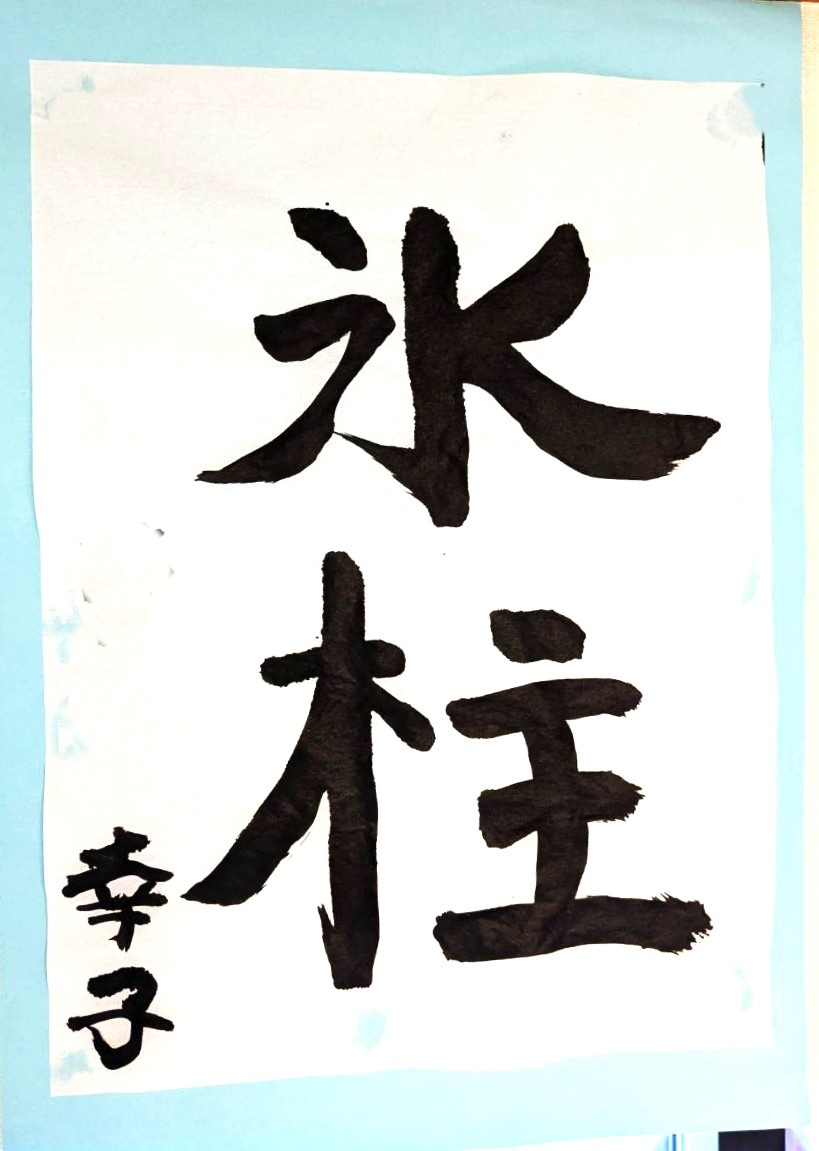 氷柱
幸子